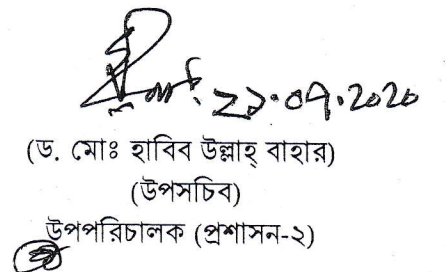 ২১.০৭.২০২০
(ড. মোঃ হাবিব উল্লাহ্ বাহার)
(উপসচিব)
উপপরিচালক (প্রশাসন-২)